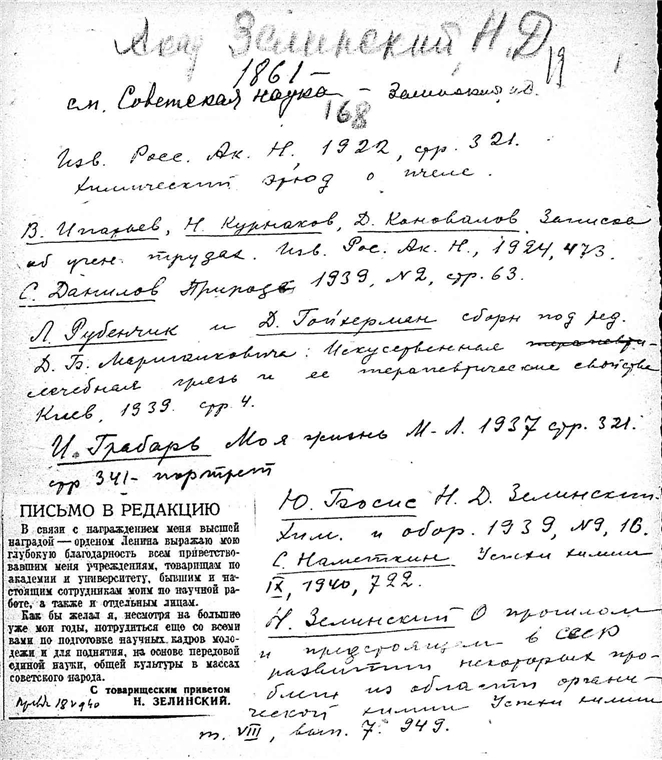 Акад Зелинский, Н.Д.
1861 –
см. Советская наука – Зелинский Н.Д.
168
Изв. Росс. Ак. Н., 1922, стр. 321.
Химический этюд о пчеле.
В. Ипатьев, Н. Курнаков, Д. Коновалов Записка
об учен. трудах. Изв. Рос. Ак. Н., 1924, 473.
С. Данилов Природа 1939, №2, стр. 63.
Л. Рубенчик и Д. Гойхерман сборн под ред.
Д. Б. : Искусственная
лечебная грязь и ее терапевтические свойства
Киев, 1939. стр. 4.
И. Грабарь Моя жизнь М-Л. 1937 стр. 321.
стр 341 – портрет
ПИСЬМО В РЕДАКЦИЮ
В связи с награждением меня высшей
наградой — орденом Ленина выражаю мою
глубокую благодарность всем приветство-
вавшим меня учреждениям, товарищам по
академии и университету, бывшим и на-
стоящим сотрудникам моим по научной ра-
боте, а также и отдельным лицам.
Как бы желал я, несмотря на большие
уже мои годы, потрудиться еще со всеми
вами по подготовке научных кадров моло-
дежи и для поднятия, на основе передовой
единой науки, общей культуры в массах
советского народа.
С товарищеским приветом
Н. ЗЕЛИНСКИЙ.
Ю. Н. Д. Зелинский.
Хим. и обор. 1939, №9, 16.
С. Наметкин Успехи химии
IX, 1940, 722.
Н. Зелинский О прошлом
и предстоящем в СССР
развитии некоторых про-
блем из области органи-
ческой химии Успехи химии
т. VIII, вып. 7. 949.